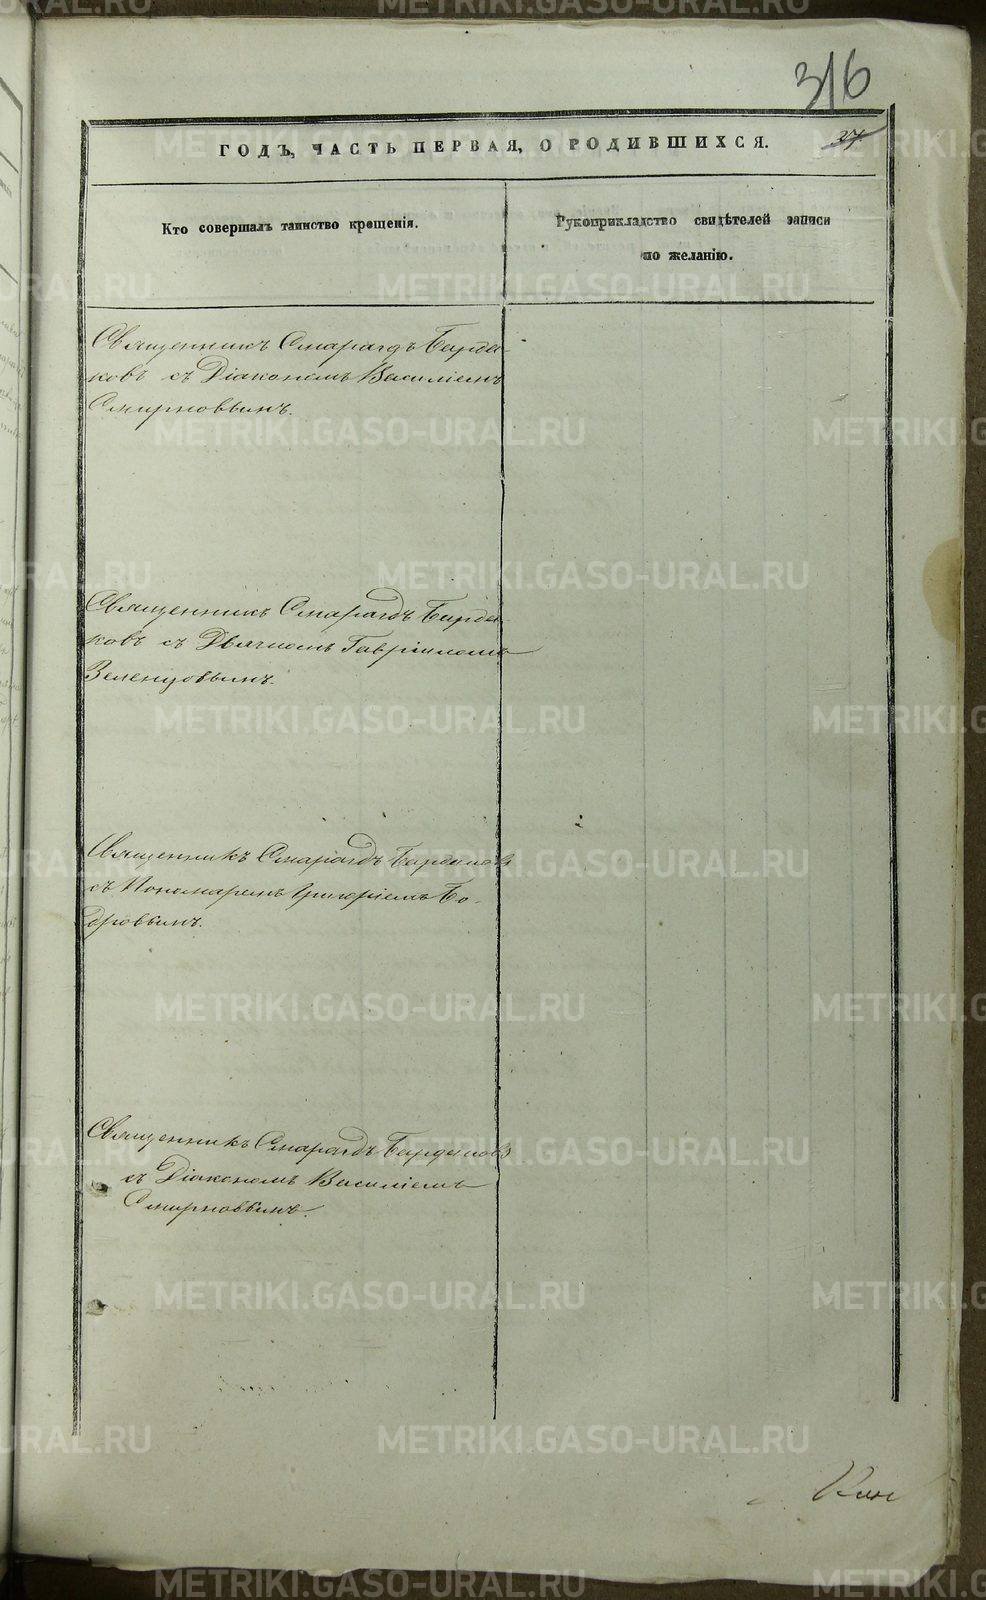 316
37
ГОДЪ, ЧАСТЬ ПЕРВАЯ, О РОДИВШИХСЯ.
Кто совершалъ таинство крещенія.
Рукоприкладство свидѣтелей записи
по желанію.
Священникъ Смарагдъ Барда-
ковъ съ Діакономъ Василіемъ
Смирновымъ.
Священникъ Смарагдъ Барда-
ковъ съ Дьячкомъ Гавріиломъ
Зеленцовымъ.
Священникъ Смарагдъ Бардаковъ
съ Пономаремъ Григоріемъ Бо-
дровымъ.
Священникъ Смарагдъ Бардаковъ
съ Діакономъ Василіемъ
Смирновымъ.
METRIKI.GASO-URAL.RU